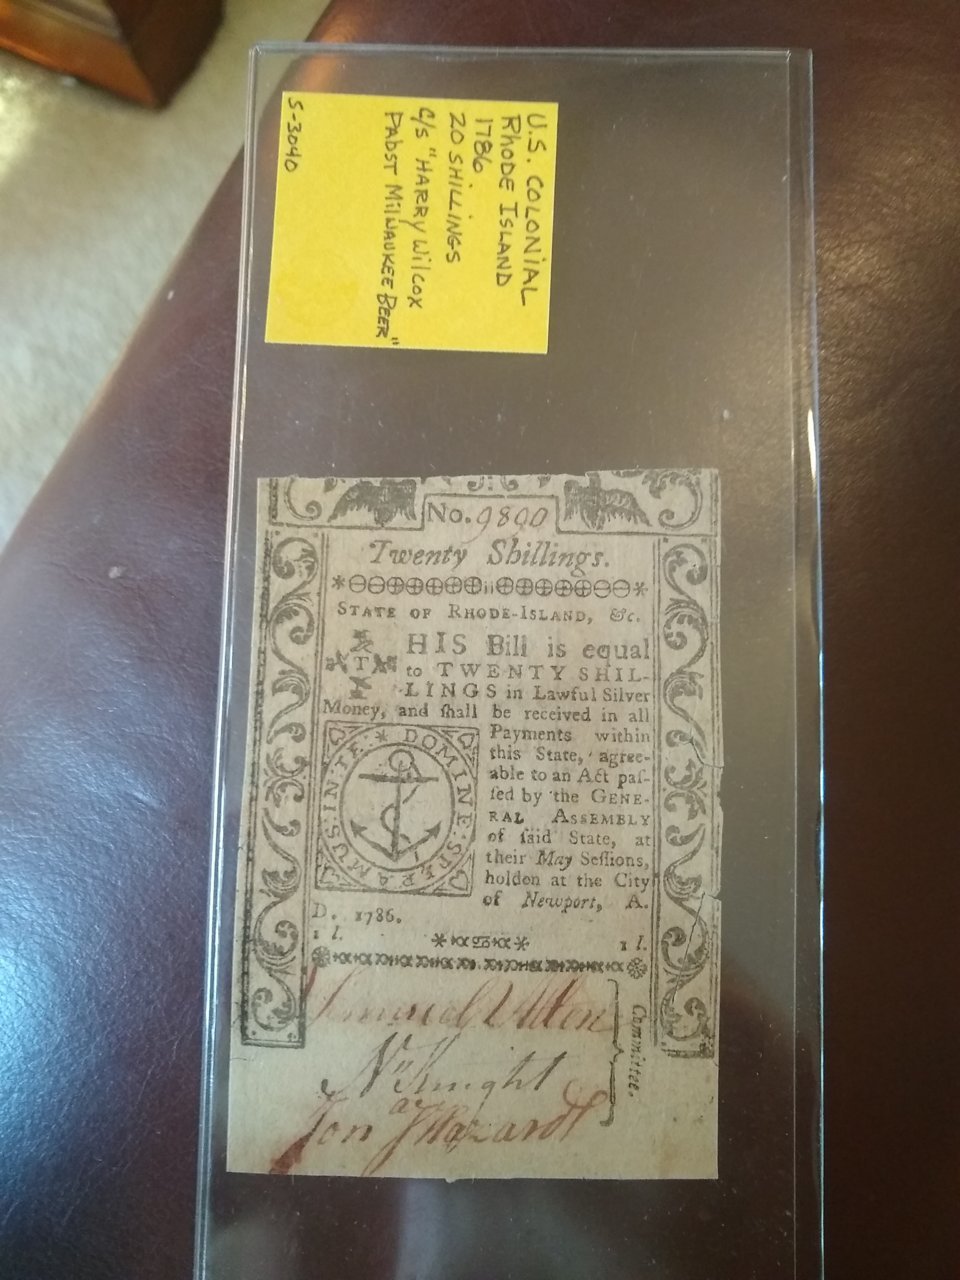 U.S. COLONIAL
RHODE ISLAND
1786
20 SHILLINGS
C/S "HARRY WILCOX
PABST MILWAUKEE BEER"
S-3040
No. 9800
Twenty Shillings.
STATE OF RHODE-ISLAND, &c.
THIS Bill is equal
to TWENTY SHIL-
LINGS in Lawful Silver
Money, and ſhall be received in all
Payments within
this State, agree-
able to an Act paſ-
ſed by the GENE-
RAL ASSEMBLY
of ſaid State, at
their May Seſſions,
holden at the City
of Newport, A.
D. 1786.
IN : TE * DOMINE : SPERAMUS :
1 l. 1 l.
Samuel Allen
N Knight
Jon J Hazard
Committee.